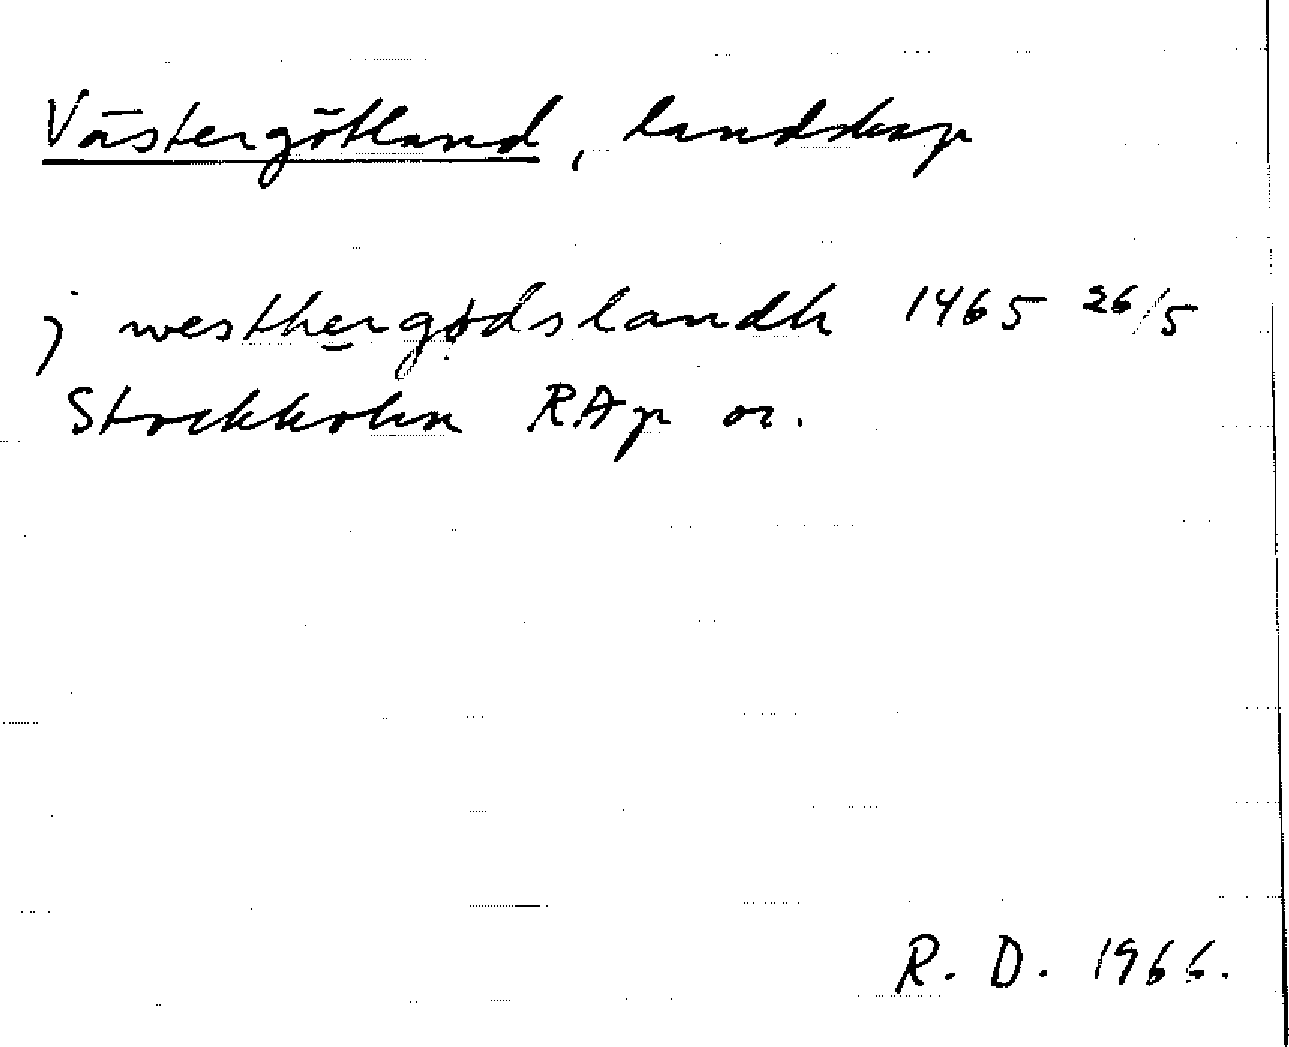 Västergötland, landskap
j westhergødslandh 1465 26/5
Stockholm RAp or.
R. D. 1966.